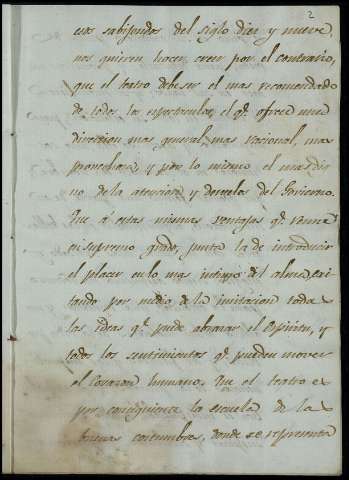 2
cos sabijondos del siglo diez y nueve,
nos quieren hacer creer por el contrario,
que el teatro debe ser el mas recomendado
de todos los espectaculos, el qᵉ. ofrece una
direccion mas general, mas racional, mas
provechosa, y por lo mismo el mas dig
no de la atencion y desvelos del Govierno.
Que á estas mismas ventajas qᵉ. reune
en supremo grado, junta la de introducir
el placer en lo mas intimo del alma, exi
tando por medio de la imitacion todas
las ideas qᵉ. puede abrazar el Espiritu, y
todos los sentimientos qᵉ. pueden mover
el Corazon humano. Que el teatro es
por consiguiente la escuela de las
buenas costumbres, donde se representa